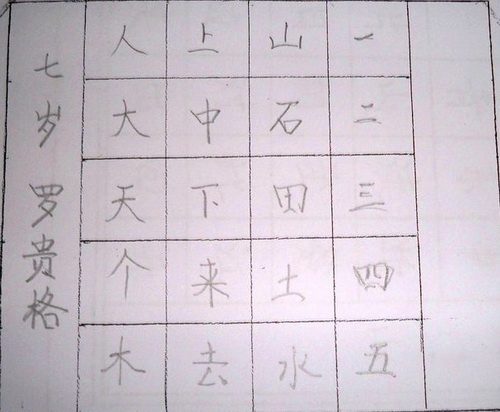 一二三四五
山石田土水
上中下来去
人大天个木
七岁 罗贵格